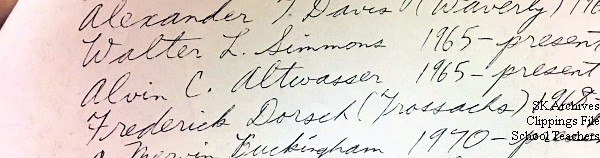 Alexander T Davis (Waverly) 196
Walter L. Simmons 1965-present
Alvin C. Altwasser 1965-present
Frederick Dorsch (Trossachs) 1968-
Mervin Buckingham 1970-present
SK Archives
Clippings File
School Teachers